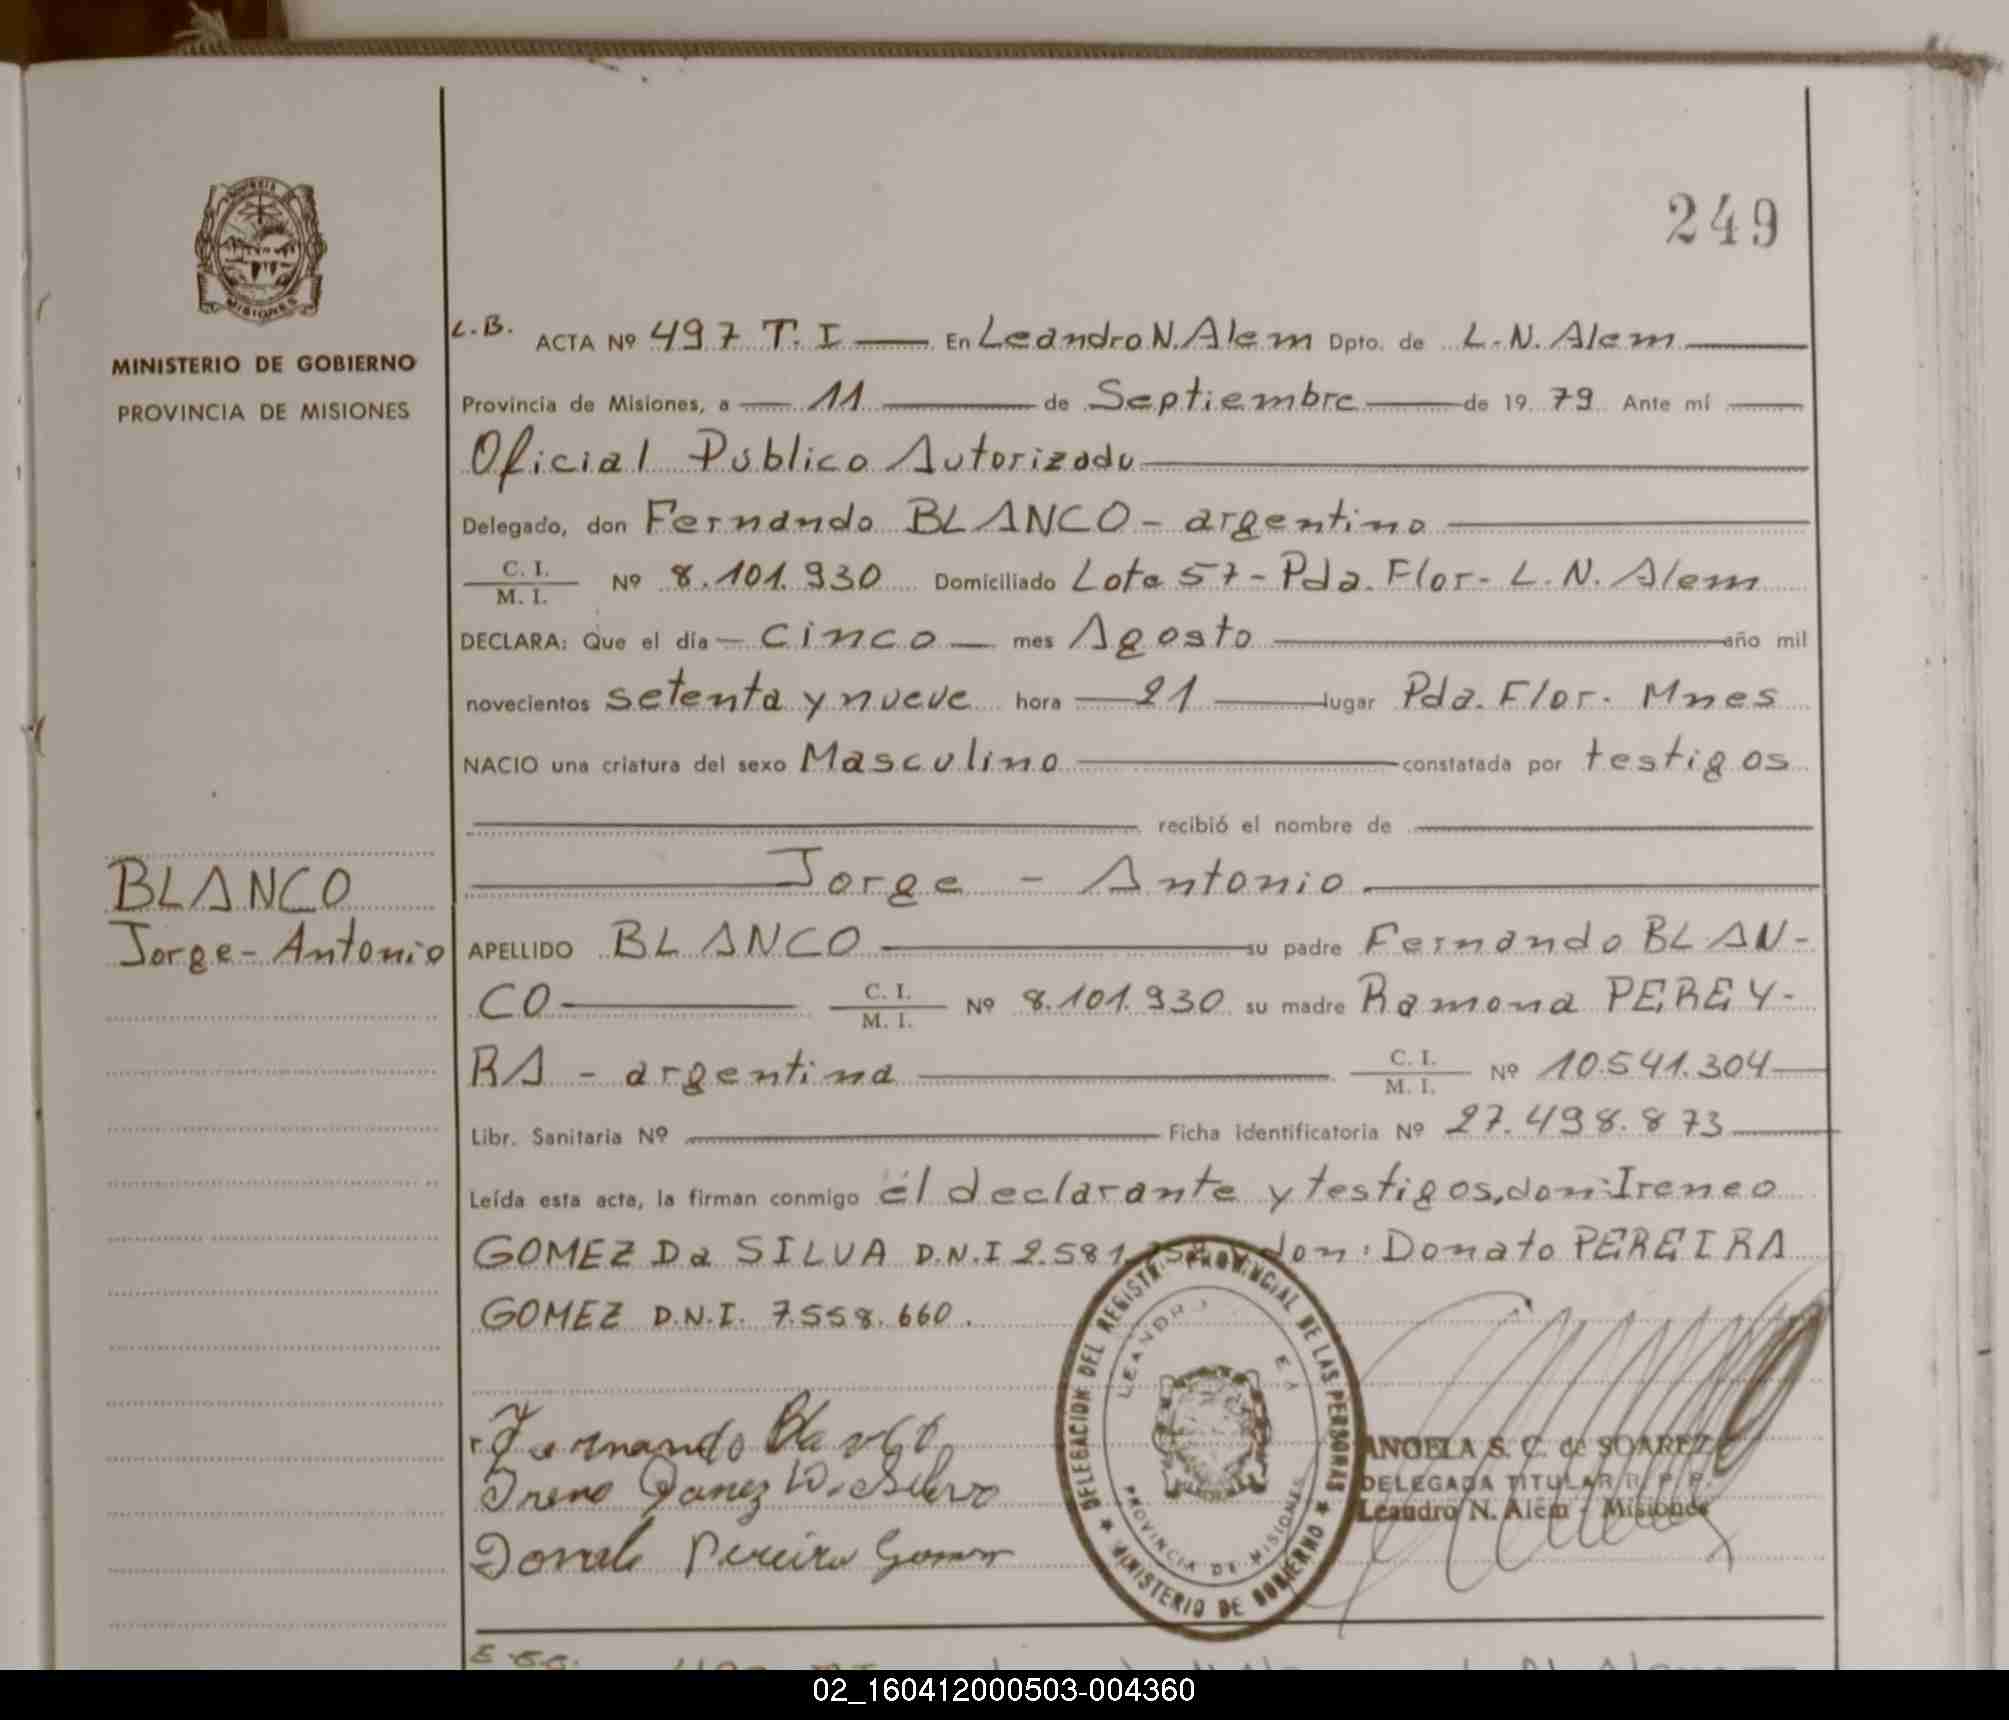 249
MISIONES
MINISTERIO DE GOBIERNO
PROVINCIA DE MISIONES
L.B. ACTA Nº 497 T. I En Leandro N. Alem Dpto. de L. N. Alem
Provincia de Misiones, a 11 de Septiembre de 19 79 Ante mí
Oficial Público Autorizado
Delegado, don Fernando BLANCO - argentino
C. I. / M. I. Nº 8.101.930 Domiciliado Lote 57 - Pda. Flor - L. N. Alem
DECLARA: Que el día cinco mes Agosto año mil
novecientos setenta y nueve hora 21 lugar Pda. Flor. Mnes
NACIO una criatura del sexo Masculino constatada por testigos
recibió el nombre de
Jorge - Antonio
BLANCO
Jorge - Antonio
APELLIDO BLANCO su padre Fernando BLAN-
CO C. I. / M. I. Nº 8.101.930 su madre Ramona PEREY-
RA - argentina C. I. / M. I. Nº 10.541.304
Libr. Sanitaria Nº Ficha identificatoria Nº 27.498.873
Leída esta acta, la firman conmigo él declarante y testigos, don: Ireneo
GOMEZ Da SILVA D.N.I 2.581. don: Donato PEREIRA
GOMEZ D.N.I. 7.558.660.
Fernando Blanco
DELEGACION DEL REGISTRO PROVINCIAL DE LAS PERSONAS
MINISTERIO DE GOBIERNO
PROVINCIA DE MISIONES
ANGELA S. C. de SOAREZ
DELEGADA TITULAR R. P. P.
Leandro N. Alem - Misiones
Donato Pereira Gomez
02_160412000503-004360